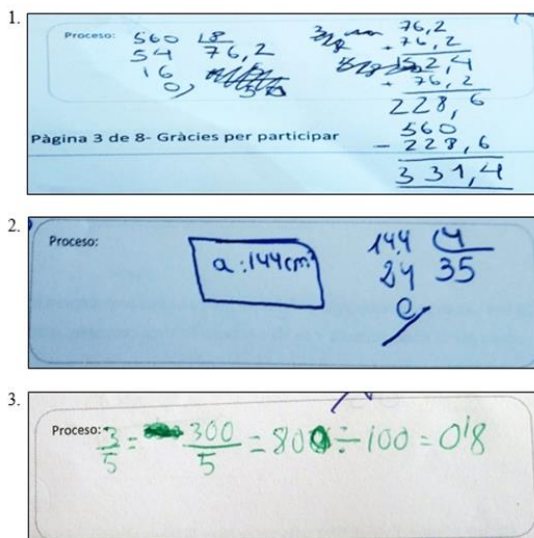 1.
Proceso:
560 8
54 76,2
16
0
76,2
+ 76,2
152,4
+ 76,2
228,6
560
- 228,6
331,4
Pàgina 3 de 8- Gràcies per participar
2.
Proceso:
a: 144cm²
144 4
24 35
0
3.
Proceso:
3/5 = 300/5 = 800 ÷ 100 = 0'8